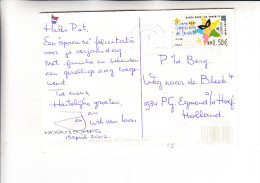 Hallo Piet,
Een Spaanse felicitatie
voor je verjaardag
met familie en bekenden
een gezellige dag toege-
wenst
Tot ziens
Hartelijke groeten,
Jan
en
van Loon
15 april 2002
0,50€
P v/d Berg
Weg naar de Bleek 4
1934 PG, Egmond a/d Hoef
Holland.